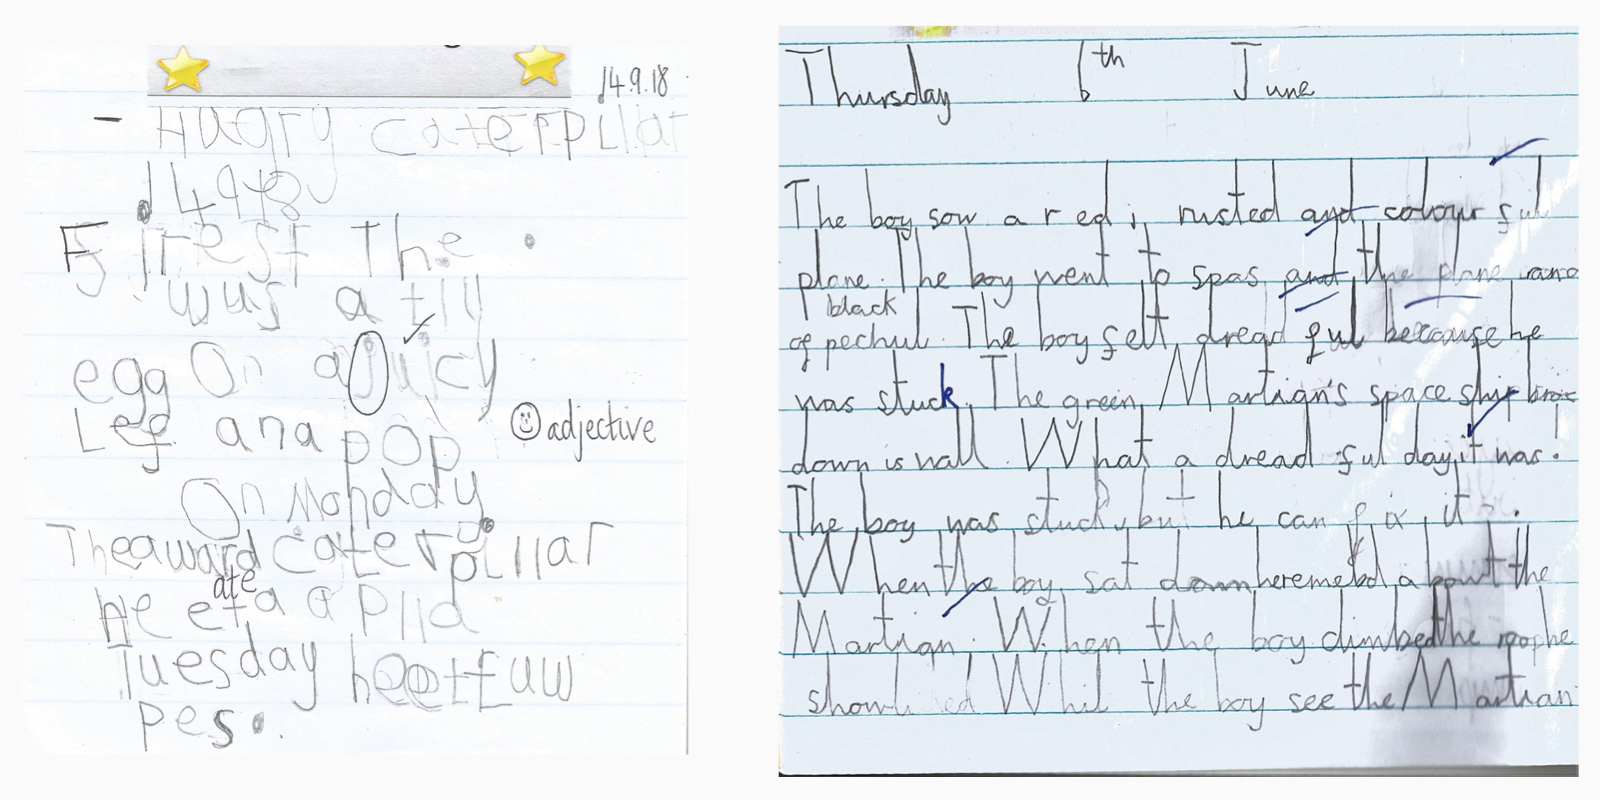 14.9.18
- Hugry caterpillar
14918
Firest The
wus a till
egg On a juicy
Lef and pop
☺ adjective
On Monday
The caterpillar
ate
He eta a
Tuesday he
pes.
Thursday 6th June
The boy sow a red, rusted and colourful
plane. The boy went to spas and the plane rano
black
of pechul. The boy felt dreadful beccause he
was stuck. The green Martign's space ship broc
down is wall. What a dreadful day it was.
The boy was stuck, but he can fix it.
When the boy sat down he remebd about the
Martign. When the boy climbed the rophe
Whil the boy see the Martian